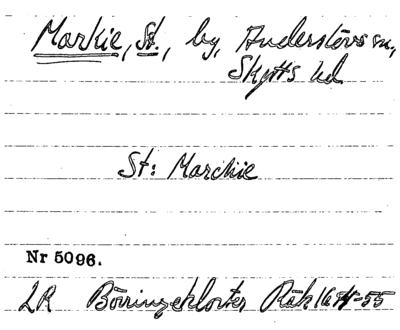 Markie, St., by, Anderslövs sn,
Skytts hd
St: Marchie
Nr 5096.
LR Börringekloster Räk 1654-55